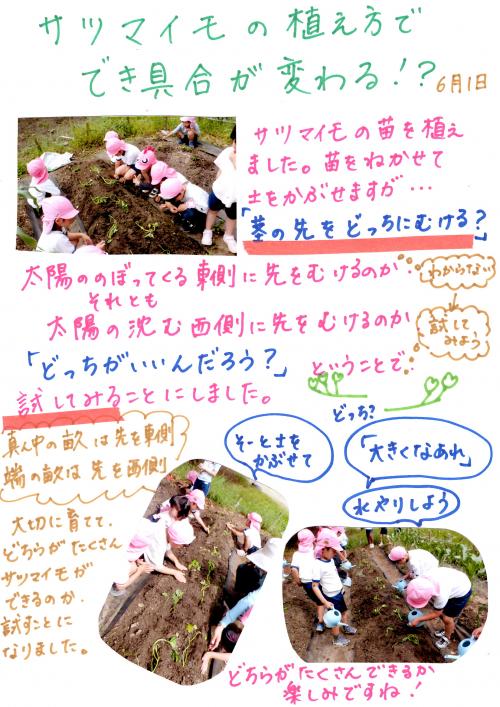 サツマイモの植え方で
でき具合が変わる!?
6月1日
サツマイモの苗を植え
ました。苗をねかせて
土をかぶせますが…
「茎の先をどっちにむける?」
太陽ののぼってくる東側に先をむけるのか
それとも
太陽の沈む西側に先をむけるのか
わからない
試して
みよう
「どっちがいいんだろう?」
ということで
試してみることにしました。
どっち?
真ん中の畝は先を東側
端の畝は先を西側
そーと土を
かぶせて
「大きくなあれ」
水やりしよう
大切に育てて、
どちらがたくさん
サツマイモが
できるのか、
試すことに
なりました。
どちらがたくさんできるか
楽しみですね!